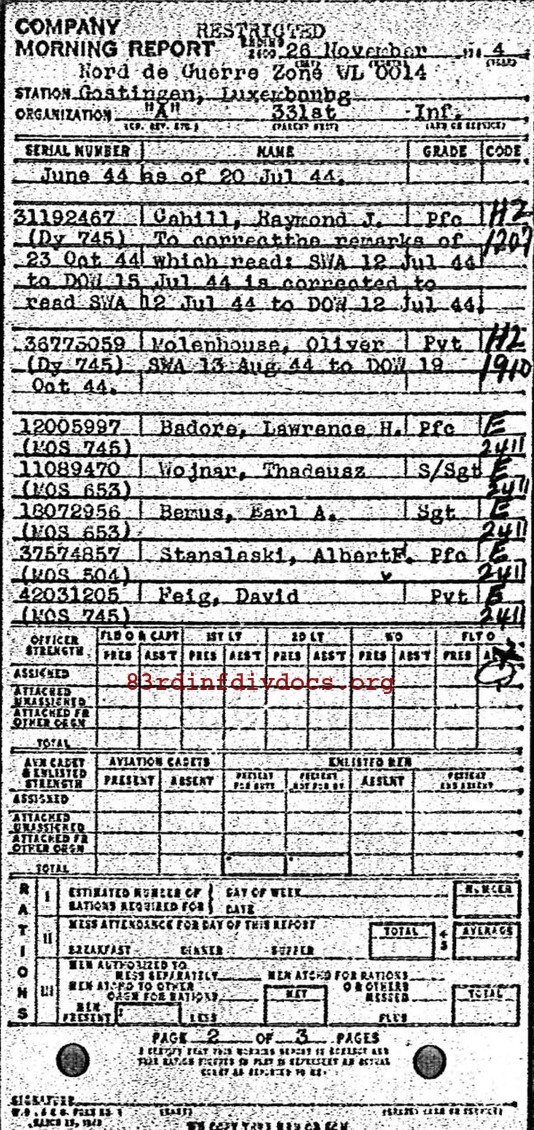 COMPANY
MORNING REPORT
RESTRICTED
ENDING 2400 26 November 194 4
Nord de Guerre Zone VL 0014
STATION Gostingen, Luxembourg
ORGANIZATION "A" 331st Inf.
SERIAL NUMBER NAME GRADE CODE
June 44 as of 20 Jul 44.
31192467 Cahill, Raymond J. Pfc H2
(Dy 745) To correctthe remarks of 1207
23 Oct 44 which read: SWA 12 Jul 44
to DOW 15 Jul 44 is corrected to
read SWA 12 Jul 44 to DOW 12 Jul 44.
36775059 Molenhouse, Oliver Pvt H2
(Dy 745) SWA 13 Aug 44 to DOW 19 1910
Oct 44.
12005997 Badore, Lawrence H. Pfc E
(MOS 745) 2411
11089470 Wojnar, Thadeusz S/Sgt E
(MOS 653) 2411
18072956 Bemus, Earl A. Sgt E
(MOS 653) 2411
37574857 Stanslaski, AlbertF. Pfc E
(MOS 504) 2411
42031205 Feig, David Pvt E
(MOS 745) 2411
OFFICER STRENGTH FLD O & CAPT 1ST LT 2D LT WO FLT O
PRES ABS'T PRES ABS'T PRES ABS'T PRES ABS'T PRES
ASSIGNED
83rdinfdivdocs.org
ATTACHED UNASSIGNED
ATTACHED FR OTHER ORGN
TOTAL
AVN CADET & ENLISTED STRENGTH AVIATION CADETS ENLISTED MEN
PRESENT ABSENT PRESENT FOR DUTY PRESENT NOT FOR DY ABSENT PRESENT AND ABSENT
ASSIGNED
ATTACHED UNASSIGNED
ATTACHED FR OTHER ORGN
TOTAL
RATIONS
I ESTIMATED NUMBER OF RATIONS REQUIRED FOR DAY OF WEEK DATE NUMBER
II MESS ATTENDANCE FOR DAY OF THIS REPORT TOTAL AVERAGE
BREAKFAST DINNER SUPPER
III MEN AUTHORIZED TO MESS SEPARATELY MEN ATCHD FOR RATIONS
MEN ATCHD TO OTHER ORGN FOR RATIONS NET OR OTHERS MESSED TOTAL
MEN PRESENT LESS PLUS
PAGE 2 OF 3 PAGES
I CERTIFY THAT THIS MORNING REPORT IS CORRECT AND
SIGNATURE